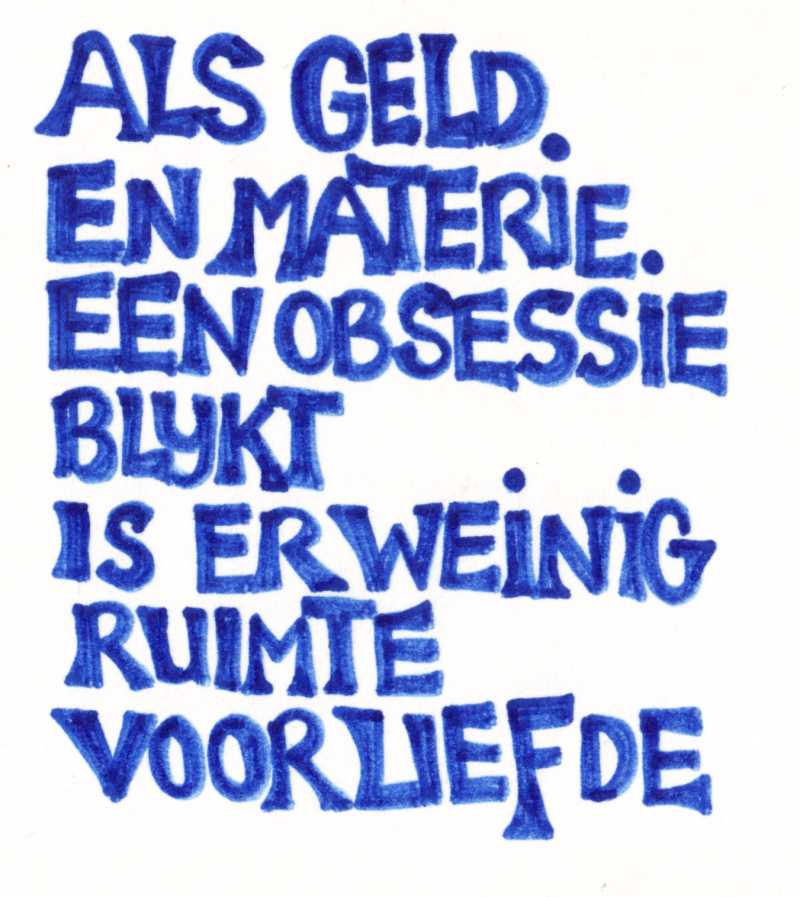 ALS GELD
EN MATERiE
EEN OBSESSiE
BLYKT
IS ER WEiNiG
RUIMTE
VOOR LIEFDE